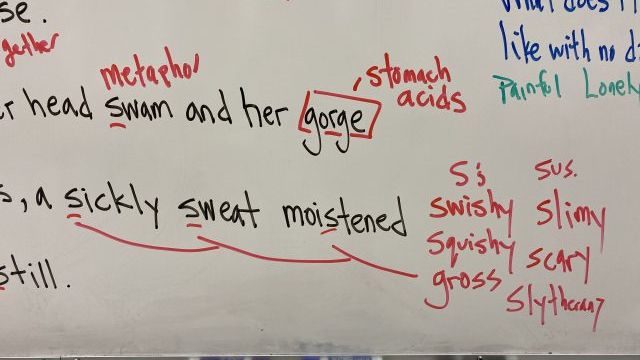 se.
gether
What does
like with no d
Painful Lonely
metaphor
stomach
acids
er head swam and her gorge
s, a sickly sweat moistened
S:
swishy
squishy
gross
sus.
slimy
scary
still.